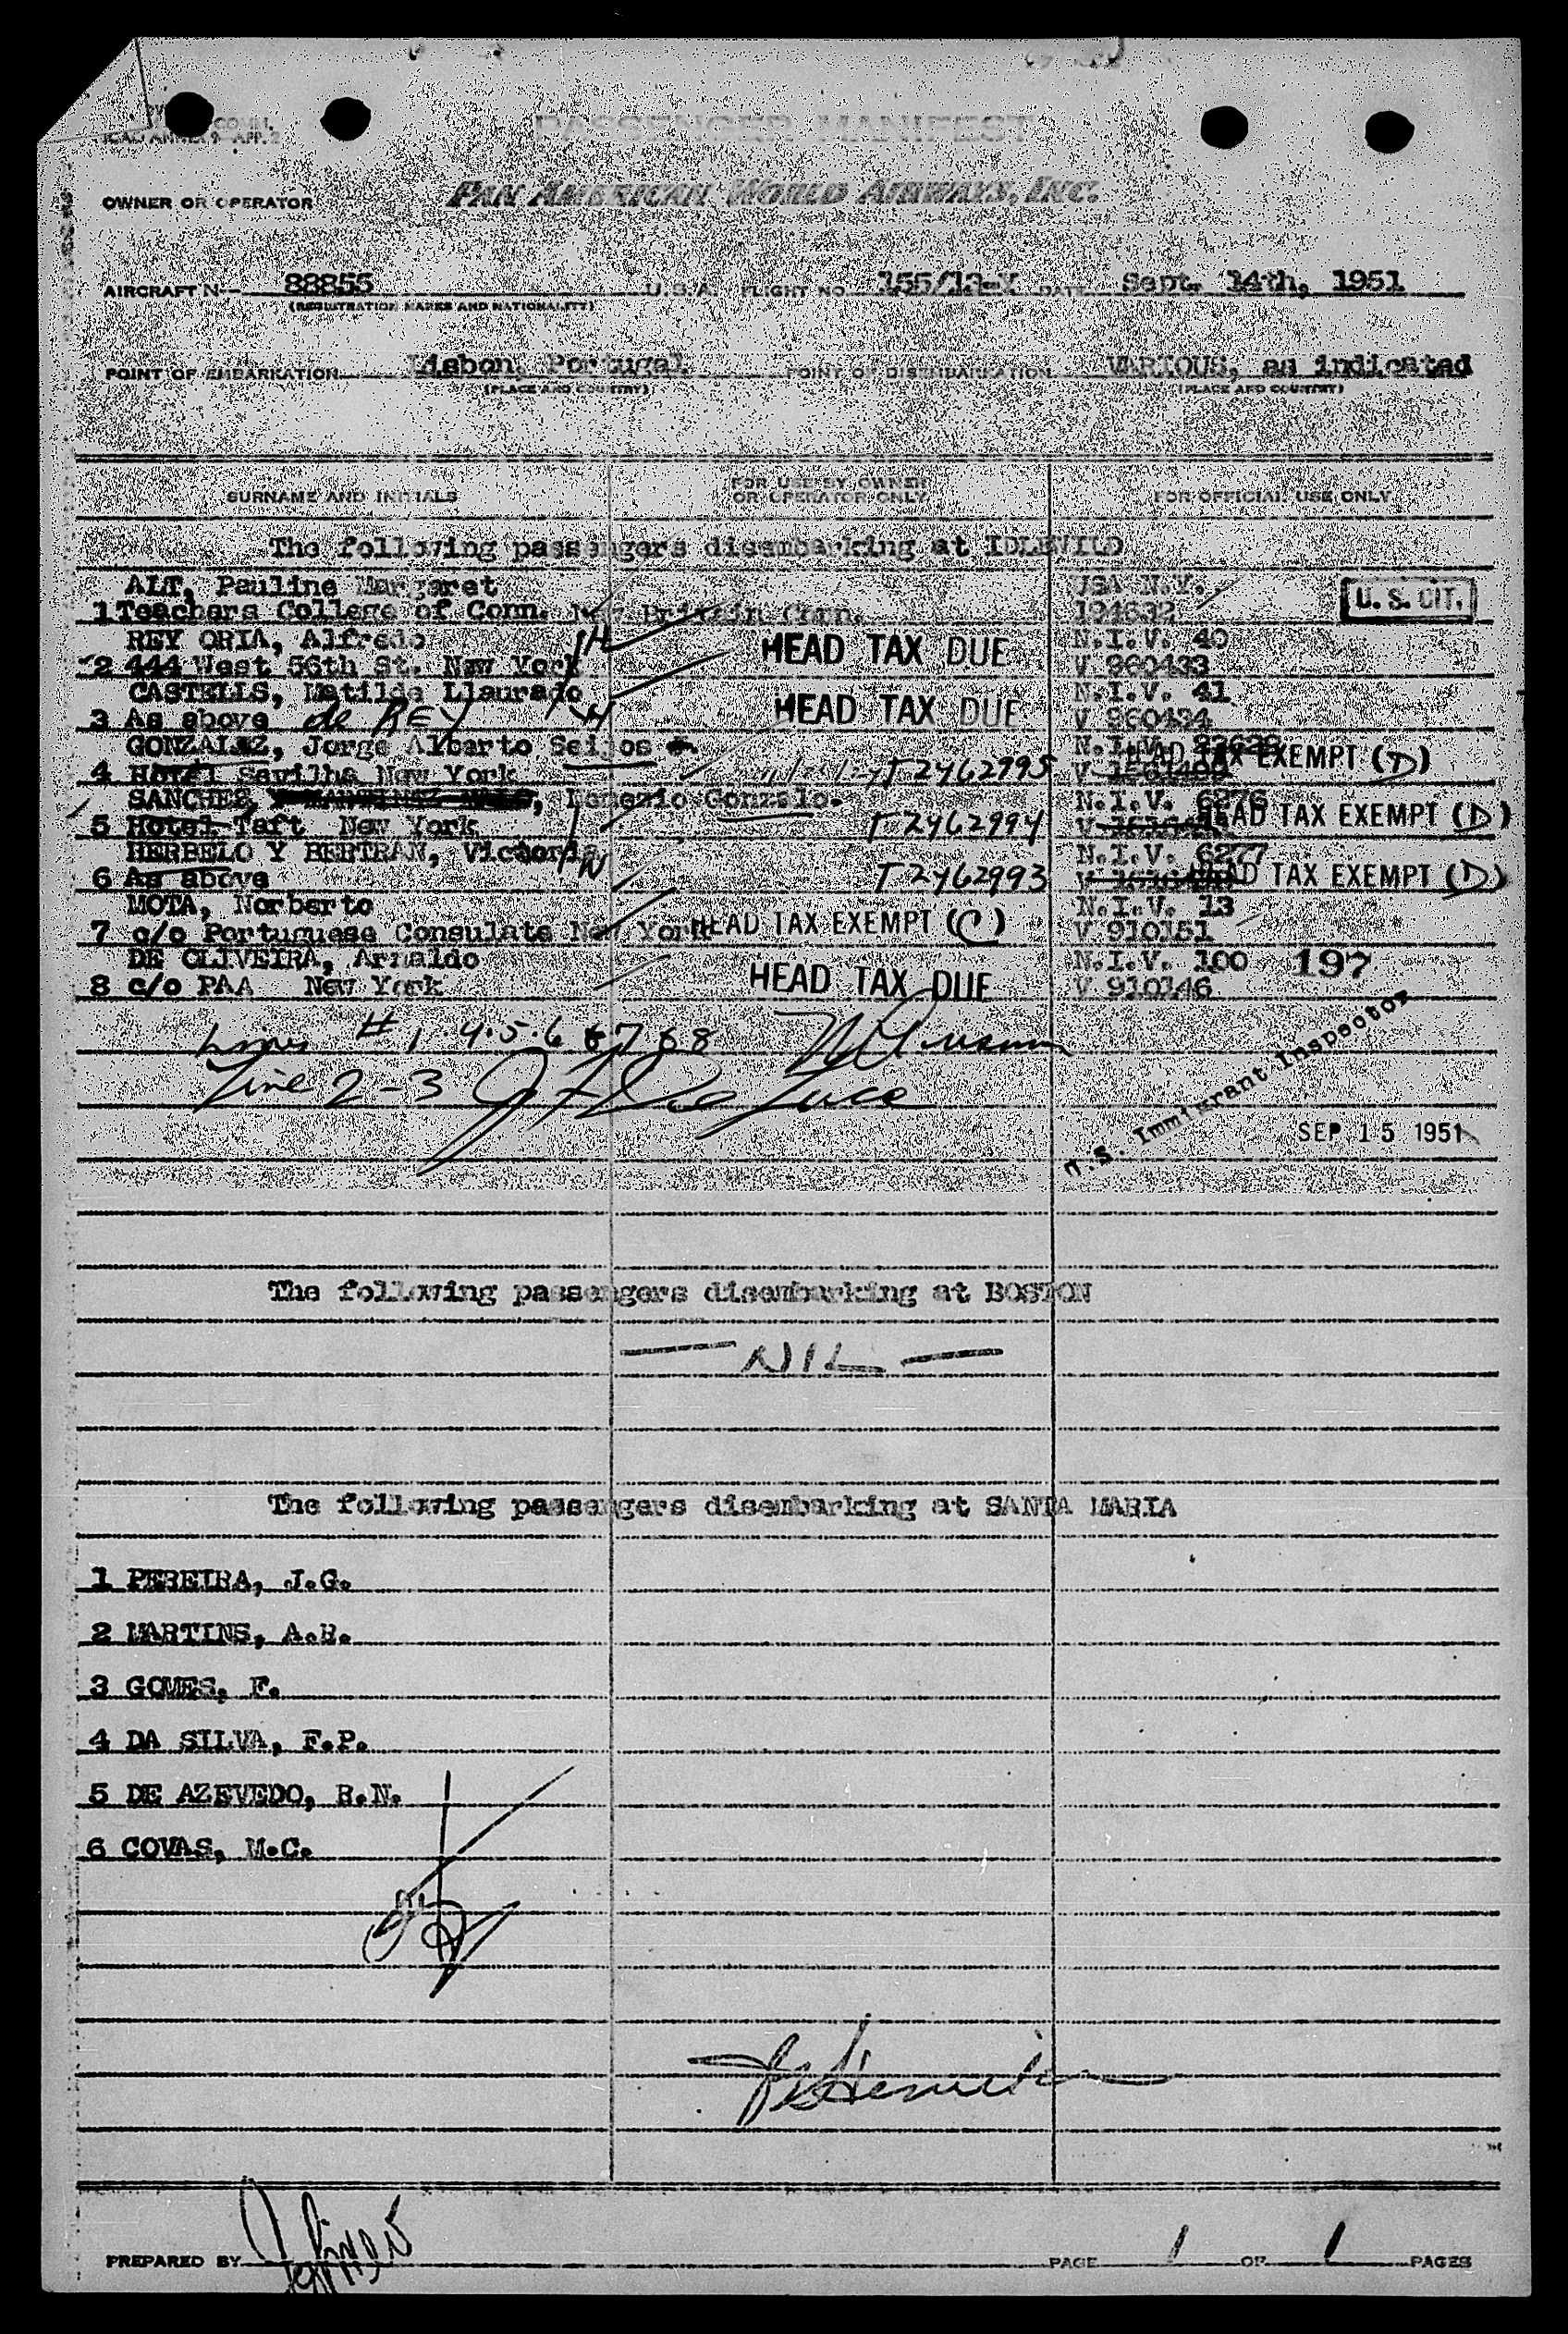 PASSENGER MANIFEST
ICAO ANNEX 9-APP.2
OWNER OR OPERATOR PAN AMERICAN WORLD AIRWAYS, INC.
AIRCRAFT N-- 88855 U.S.A. FLIGHT NO. 155/13-X DATE Sept. 14th, 1951
(REGISTRATION MARKS AND NATIONALITY)
POINT OF EMBARKATION Lisbon, Portugal POINT OF DISEMBARKATION VARIOUS, as indicated
(PLACE AND COUNTRY) (PLACE AND COUNTRY)
SURNAME AND INITIALS FOR USE BY OWNER OR OPERATOR ONLY FOR OFFICIAL USE ONLY
The following passengers disembarking at IDLEWILD
ALT, Pauline Margaret USA N.Y.
1 Teachers College of Conn. New Britain Conn. 194632 U. S. CIT.
REY ORIA, Alfredo HEAD TAX DUE N.I.V. 40
2 444 West 56th St. New York V 960433
CASTELLS, Matilde Llaurado HEAD TAX DUE N.I.V. 41
3 As above de REY V 960434
GONZALEZ, Jorge Alberto Seijos N.I.V. HEAD TAX EXEMPT (D)
4 Hotel Sevilha New York T2462995 V
SANCHEZ, Gonzalo. N.I.V. 6276 HEAD TAX EXEMPT (D)
5 Hotel Taft New York T2462994 V
HERBELO Y BERTRAN, Victoria N.I.V. 6277
6 As above T2462993 HEAD TAX EXEMPT (D)
MOTA, Norberto N.I.V. 13
7 c/o Portuguese Consulate New York HEAD TAX EXEMPT (C) V 910151
DE OLIVEIRA, Arnaldo N.I.V. 100 197
8 c/o PAA New York HEAD TAX DUE V 910146
Lines #1.4.5.6 & 7 & 8
Line 2-3
U.S. Immigrant Inspector
SEP 15 1951
The following passengers disembarking at BOSTON
— NIL —
The following passengers disembarking at SANTA MARIA
1 PEREIRA, J.G.
2 MARTINS, A.B.
3 GOMES, F.
4 DA SILVA, F.P.
5 DE AZEVEDO, R.N.
6 COVAS, M.C.
PREPARED BY PAGE 1 OF 1 PAGES